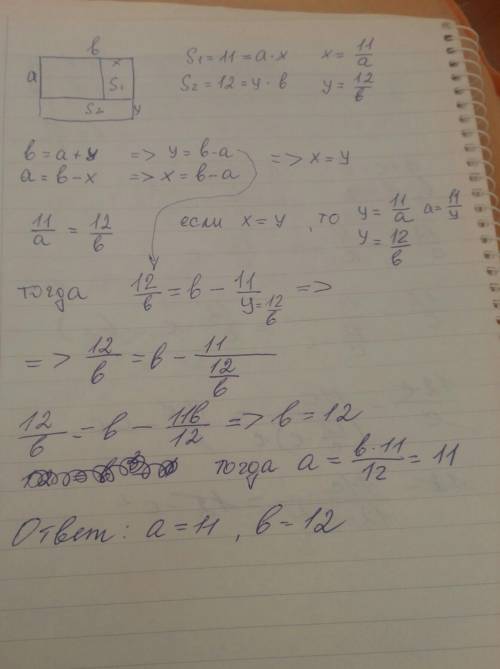 в
x
a
S₁
S₂
y
S₁ = 11 = a · x    x = 11/a
S₂ = 12 = y · в    y = 12/в
в = a + y  => y = в - a
=> x = y
a = в - x  => x = в - a
11/a = 12/в    если x = y, то y = 11/a  a = 11/y
y = 12/в
тогда 12/в = в - 11/y = 12/в =>
=> 12/в = в - 11/(12/в)
12/в = в - 11в/12 => в = 12
тогда a = в·11/12 = 11
Ответ: a = 11, в = 12